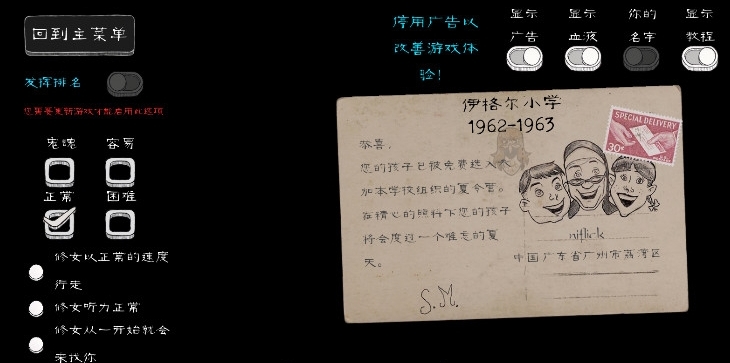 回到主菜单
停用广告以
改善游戏体
验!
显示
广告
显示
血液
你的
名字
显示
教程
发挥排名
您需要重新游戏才能启用此选项
鬼魂
容易
正常
困难
修女以正常的速度
行走
修女听力正常
修女从一开始就会
来找你
伊格尔小学
1962-1963
SPECIAL DELIVERY
30¢
恭喜,
您的孩子已被免费选入参
加本学校组织的夏令营。
在精心的照料下您的孩子
将会度过一个难忘的夏
天。
S.M.
niflick
中国广东省广州市荔湾区